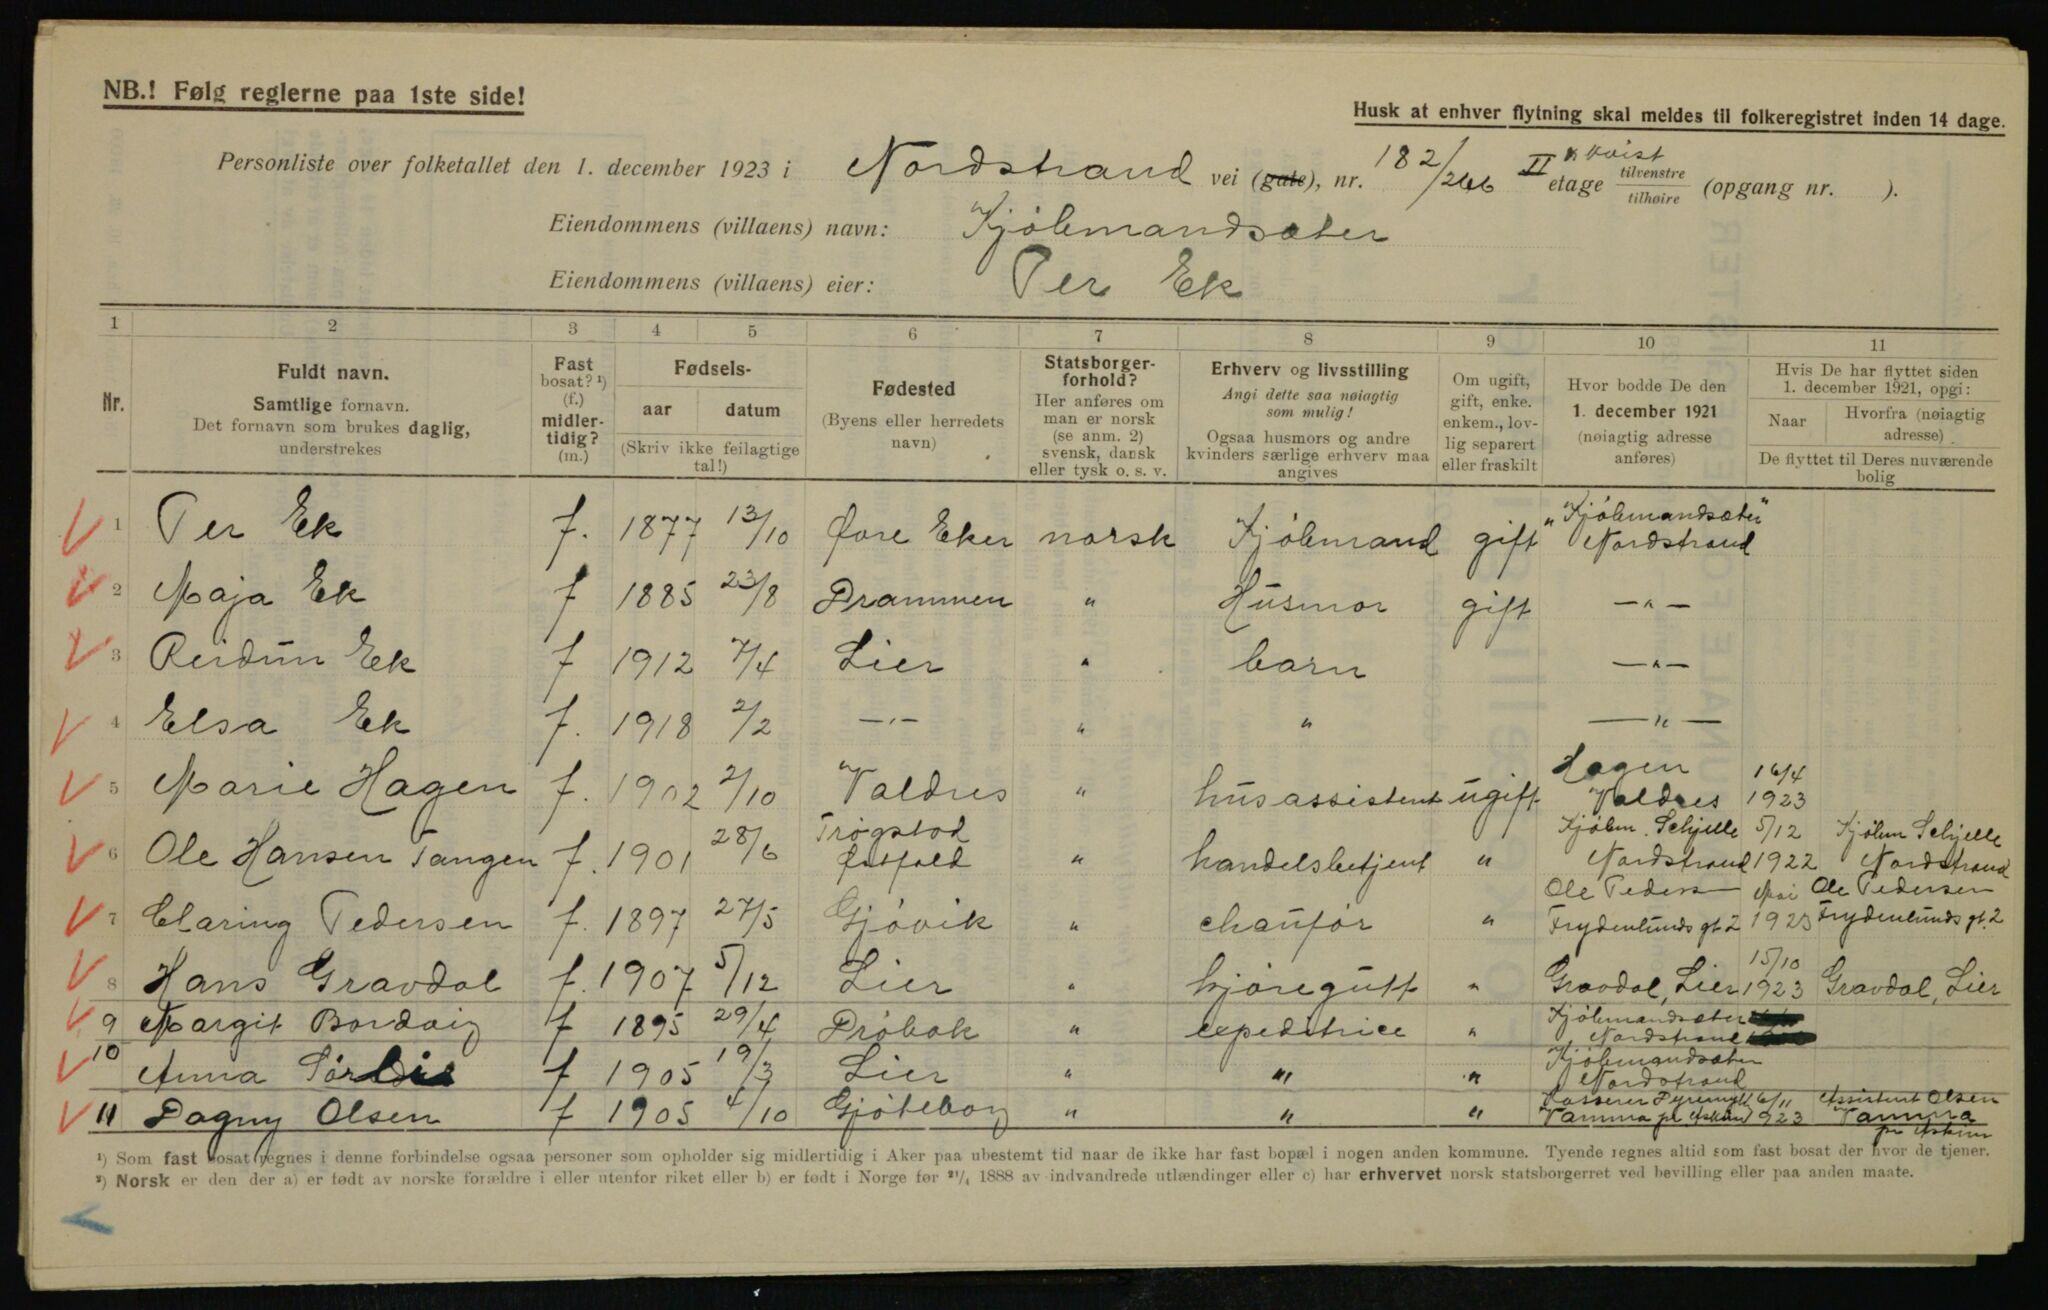 NB.! Følg reglerne paa 1ste side!
Husk at enhver flytning skal meldes til folkeregistret inden 14 dage.
Personliste over folketallet den 1. december 1923 i Nordstrand vei (gate), nr. 182/266 II etage kvist tilvenstre tilhøire (opgang nr. ).
Eiendommens (villaens) navn: Kjöbmandsæter
Eiendommens (villaens) eier: Per Ek
1 2 3 4 5 6 7 8 9 10 11
Nr.
Fuldt navn. Samtlige fornavn. Det fornavn som brukes daglig, understrekes
Fast bosat? ¹) (f.) midlertidig? (m.)
Fødsels- aar datum (Skriv ikke feilagtige tal!)
Fødested (Byens eller herredets navn)
Statsborgerforhold? Her anføres om man er norsk (se anm. 2) svensk, dansk eller tysk o. s. v.
Erhverv og livsstilling Angi dette saa nøiagtig som mulig! Ogsaa husmors og andre kvinders særlige erhverv maa angives
Om ugift, gift, enke. enkem., lovlig separert eller fraskilt
Hvor bodde De den 1. december 1921 (nøiagtig adresse anføres)
Hvis De har flyttet siden 1. december 1921, opgi: Naar Hvorfra (nøiagtig adresse) De flyttet til Deres nuværende bolig
1 Per Ek f. 1877 13/10 Øvre Eker norsk Kjöbmand gift "Kjöbmandsæter" Nordstrand
2 Maja Ek f 1885 23/8 Drammen " Husmor gift —"—
3 Reidun Ek f 1912 7/4 Lier " barn —"—
4 Elsa Ek f. 1918 2/2 —"— " " —"—
5 Marie Hagen f. 1902 2/10 Valdres " husassistent ugift Hagen Valdres 16/4 1923
6 Ole Hansen Tangen f. 1901 28/6 Trøgstad Østfold " handelsbetjent " Kjöbm. Schjelle Nordstrand 5/12 1922 Kjöbm Schjelle Nordstrand
7 Claring Pedersen f. 1897 27/5 Gjövik " chauför " Ole Peders Frydenlunds gt. 2 Mai 1923 Ole Pedersen Frydenlunds gt. 2
8 Hans Gravdal f. 1907 5/12 Lier " kjöregutt " Gravdal, Lier 15/10 1923 Gravdal, Lier
9 Margit Bordvig f 1895 29/4 Dröbak " expeditrice " Kjöbmandsæter Nordstrand
10 Anna f 1905 19/3 Lier " " " Kjöbmandsæter Nordstrand
11 Dagny Olsen f 1905 4/10 Gjöteborg " " " Kasserer Vamma pr Askim 6/11 1923 Assistent Olsen Vamma pr Askim
¹) Som fast bosat regnes i denne forbindelse ogsaa personer som opholder sig midlertidig i Aker paa ubestemt tid naar de ikke har fast bopæl i nogen anden kommune. Tyende regnes altid som fast bosat der hvor de tjener.
²) Norsk er den der a) er født av norske forældre i eller utenfor riket eller b) er født i Norge før ²¹/₄ 1888 av indvandrede utlændinger eller c) har erhvervet norsk statsborgerret ved bevilling eller paa anden maate.